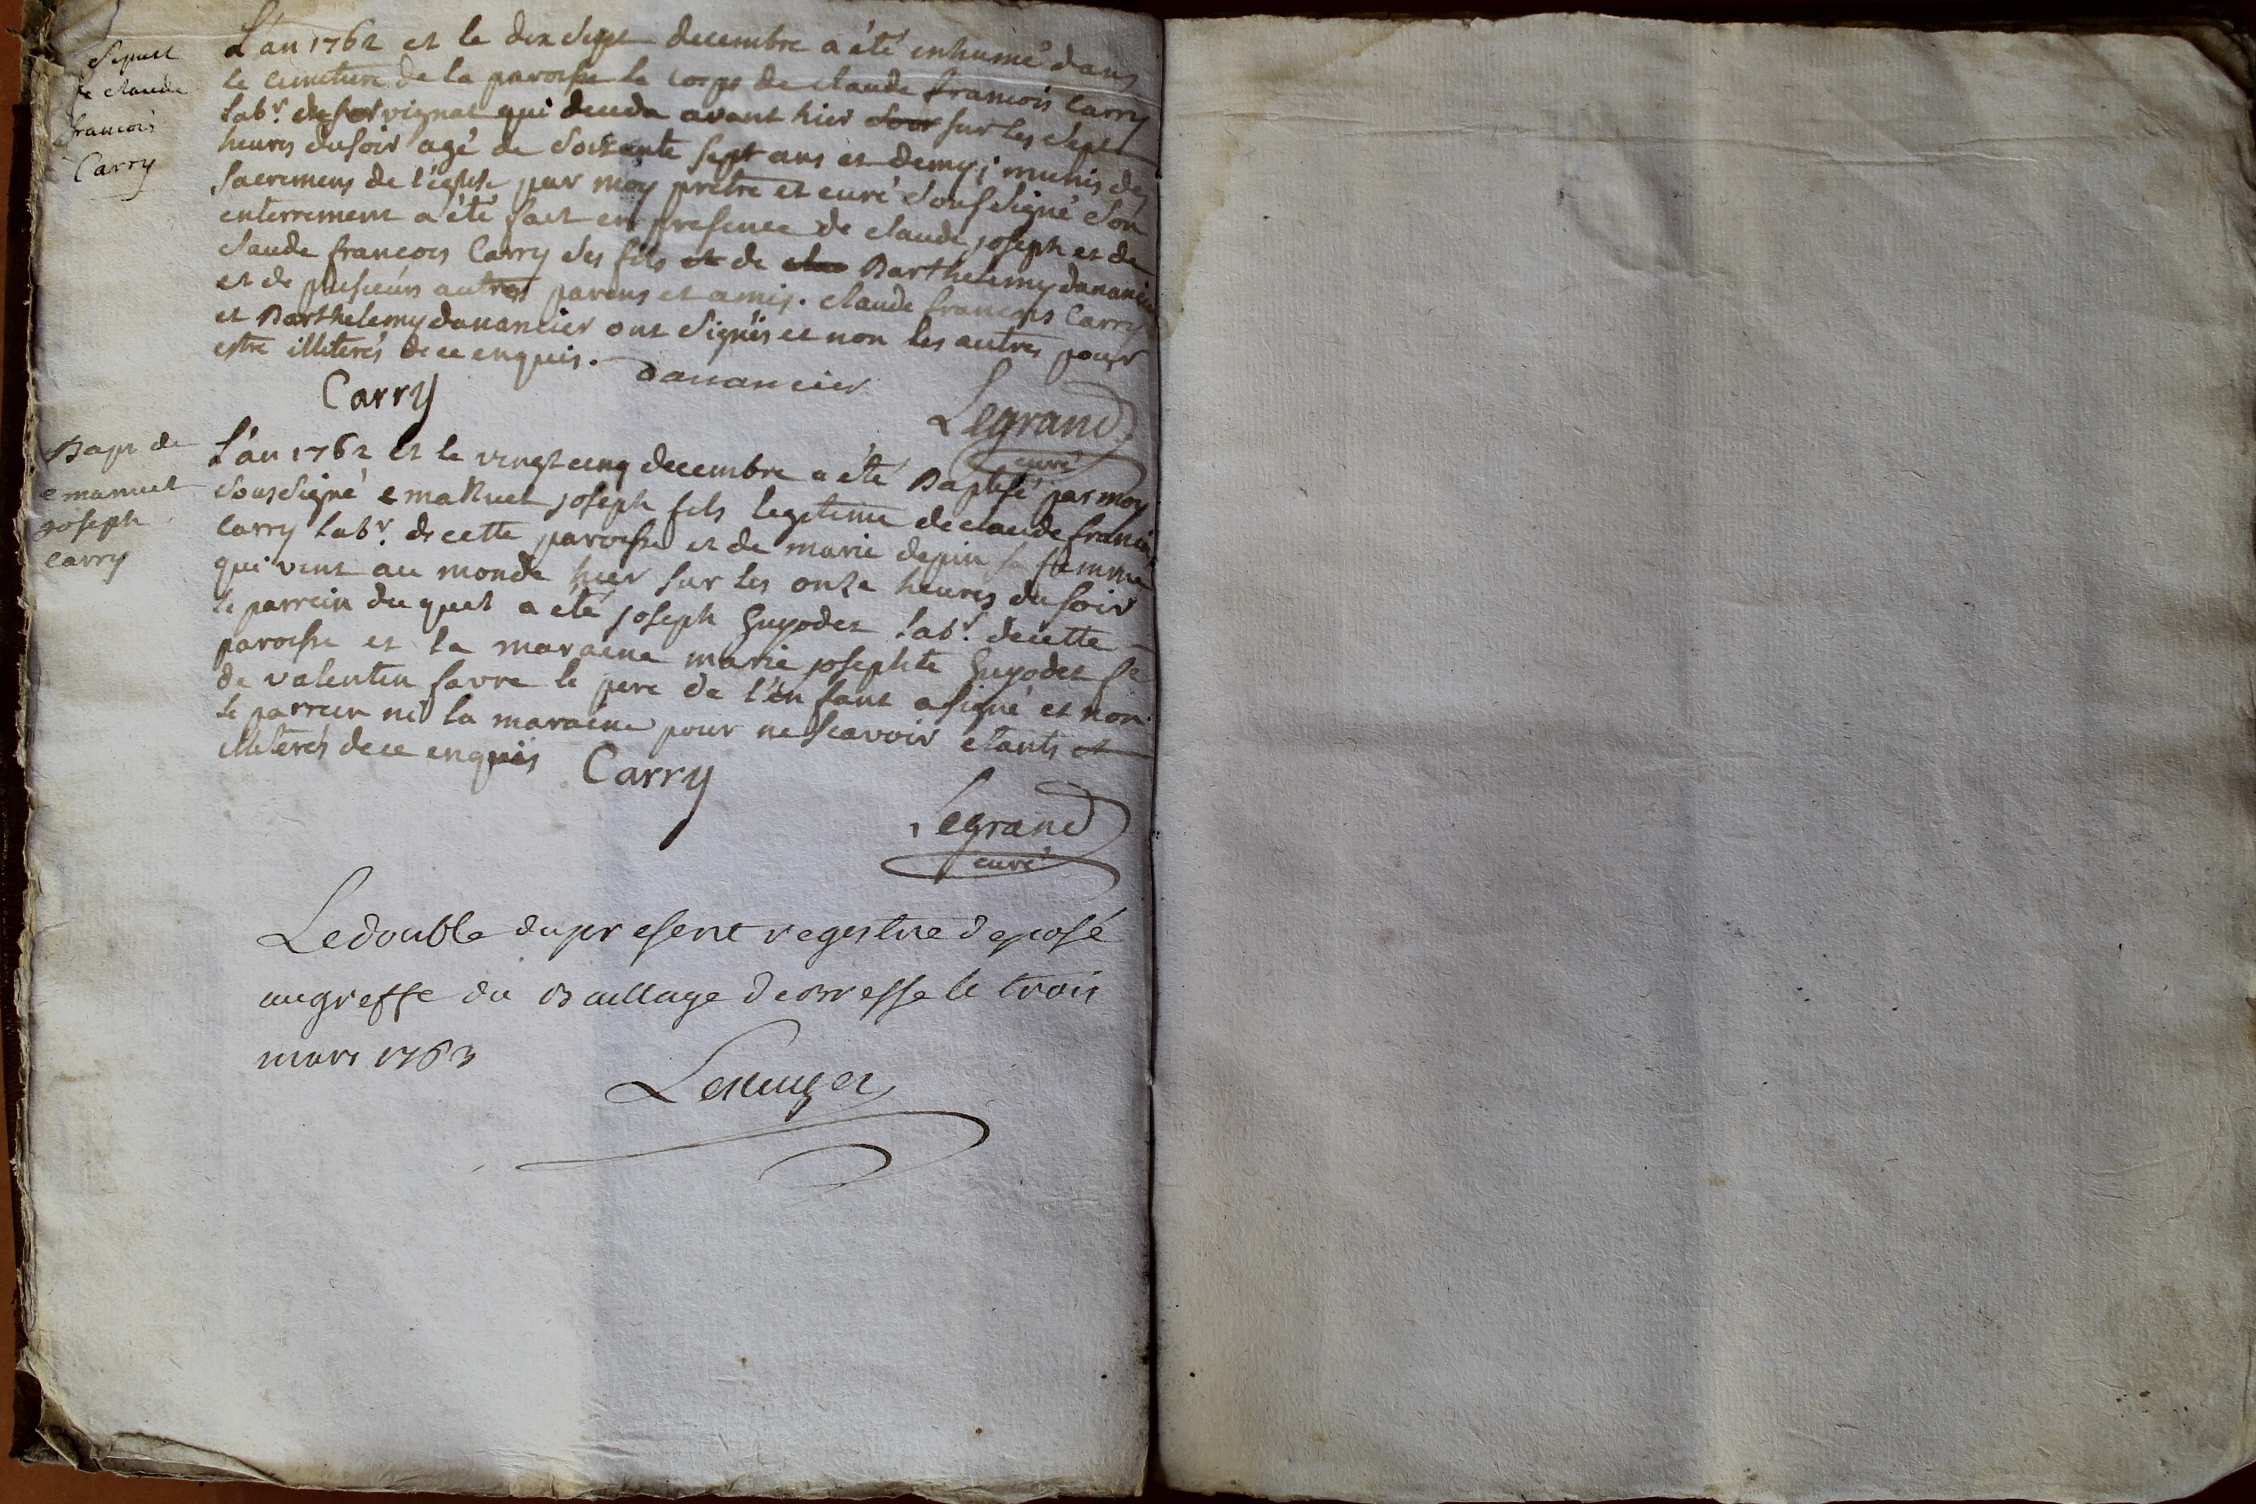 Sepult
de claude
francois
Carry
L'an 1762 et le dix sept decembre a été inhumé dans
le cimetiere de la paroisse le corps de claude francois Carry
lab.r de vignat qui deceda avant hier sur les sept
heures du soir agé de soixante sept ans et demy; munis des
sacremens de l'eglise par moy pretre et curé soussigné son
enterrement a été fait en presence de claude joseph et de
claude francois Carry ses fils et de Barthelemy dananc
et de plusieurs autres parens et amis. claude francois Carry
et Barthelemy danancier ont signés et non les autres pour
estre illiterés de ce enquis.
Carry danancier Legrand
curé
Bapt de
emanuel
joseph
Carry
L'an 1762 et le vingt cinq decembre a été Baptisé par moy
soussigné emanuel joseph fils legitime de claude francois
Carry lab.r de cette paroisse et de marie depin sa femme
qui vint au monde hier sur les onze heures du soir
le parrein du quel a été joseph Guyodet lab.r de cette
paroisse et la maraine marie josephte Guyodet fe
de valentin favre le pere de l'enfant a signé et non
le parrein ni la maraine pour ne scavoir etants
illiterés de ce enquis Carry
Legrand
curé
Le double du present registre deposé
au greffe du Baillage de Bresse le trois
mars 1763